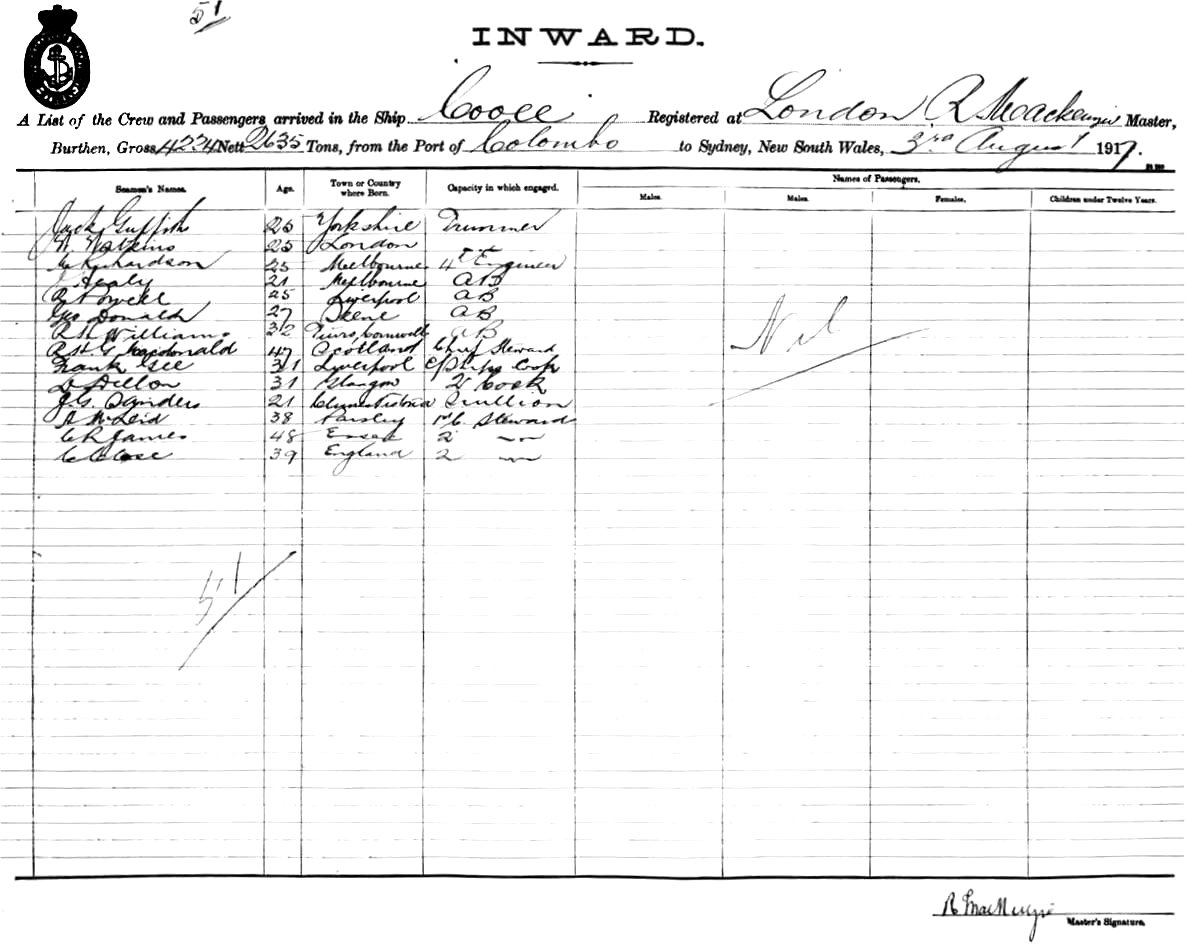 51
INWARD.
A List of the Crew and Passengers arrived in the Ship Cooee Registered at London R Mackenzie Master,
Burthen, Gross 4234 Nett 2635 Tons, from the Port of Colombo to Sydney, New South Wales, 3rd August 1917.
Seamen's Names. Age. Town or Country where Born. Capacity in which engaged. Names of Passengers.
Males. Males. Females. Children under Twelve Years.
Jack Griffith 26 Yorkshire Trimmer
Watkins 25 London
Richardson 25 Melbourne 4th Engineer
J Healy 21 Melbourne AB
Powell 25 Liverpool AB
Geo Donald 27 Skene AB
Williams 32 Truro, Cornwall AB
Macdonald 47 Scotland Chief Steward
Frank Gee 31 Liverpool Ships Cook
D Dillon 31 Glasgow 2 Cook
J.G. Sanders 21 Scullion
A McLeid 38 Paisley Steward
C R James 48 Essex 2 "
C Close 39 England 2 "
Nil
51
R MacKenzie
Master's Signature.